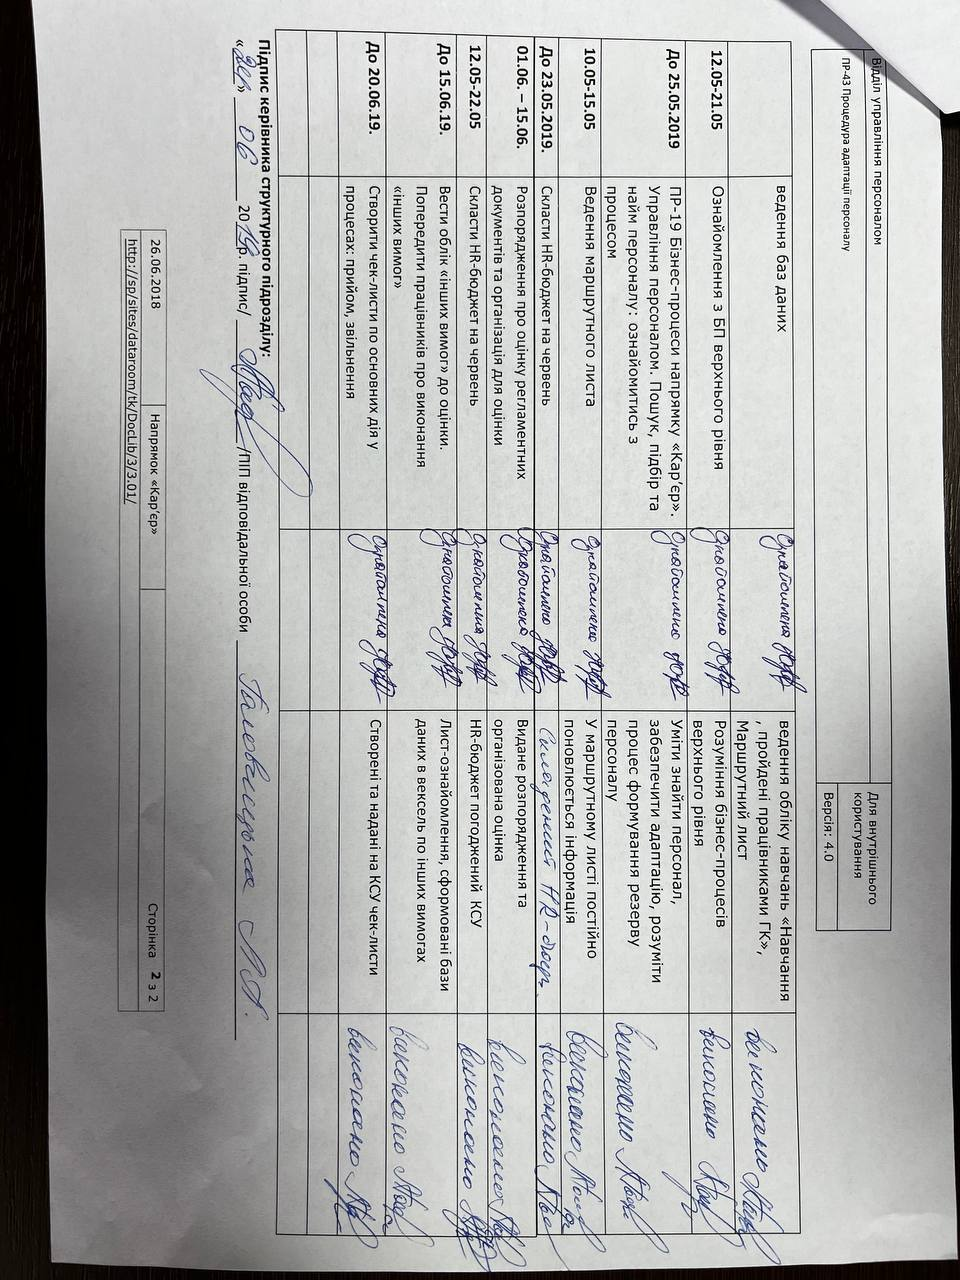 Відділ управління персоналом
ПР-43 Процедура адаптації персоналу
Для внутрішнього
користування
Версія: 4.0
ведення баз даних
Ознайомлена
ведення обліку навчань «Навчання
, пройдені працівниками ГК»,
Маршрутний лист
виконано
12.05-21.05
Ознайомлення з БП верхнього рівня
Ознайомлена
Розуміння бізнес-процесів
верхнього рівня
виконано
До 25.05.2019
ПР-19 Бізнес-процеси напрямку «Кар’єр».
Управління персоналом. Пошук, підбір та
найм персоналу: ознайомитись з
процесом
Ознайомлена
Уміти знайти персонал,
забезпечити адаптацію, розуміти
процес формування резерву
персоналу
виконано
10.05-15.05
Ведення маршрутного листа
Ознайомлена
У маршрутному листі постійно
поновлюється інформація
виконано
До 23.05.2019.
Скласти HR-бюджет на червень
Ознайомлена
Складений HR-бюдж.
виконано
01.06. – 15.06.
Розпорядження про оцінку регламентних
документів та організація для оцінки
Ознайомлена
Видане розпорядження та
організована оцінка
виконано
12.05-22.05
Скласти HR-бюджет на червень
Ознайомлена
HR-бюджет погоджений КСУ
виконано
До 15.06.19.
Вести облік «інших вимог» до оцінки.
Попередити працівників про виконання
«інших вимог»
Ознайомлена
Лист-ознайомлення, сформовані бази
даних в вексель по інших вимогах
виконано
До 20.06.19.
Створити чек-листи по основних дія у
процесах: прийом, звільнення
Ознайомлена
Створені та надані на КСУ чек-листи
виконано
Підпис керівника структурного підрозділу:
« » 06 2019р. підпис/ /ПІП відповідальної особи
26.06.2018
Напрямок «Кар’єр»
Сторінка 2 з 2
http://sp/sites/dataroom/tk/DocLib/3/3.01/